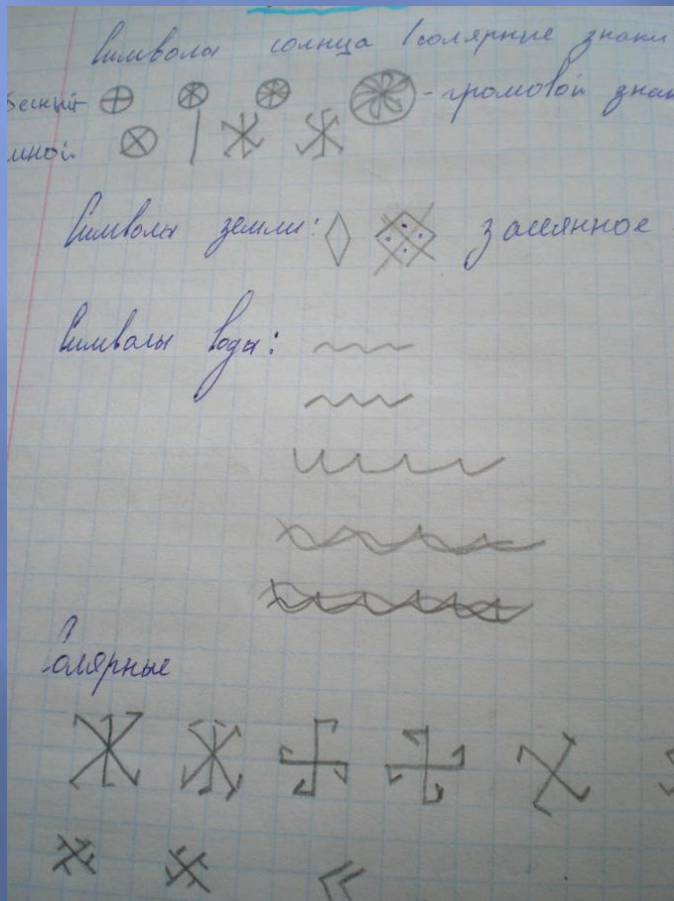 Символы солнца (солярные знаки
бесный
- громовой знак
мной
Символы земли:
засеянное
Символы воды:
Солярные